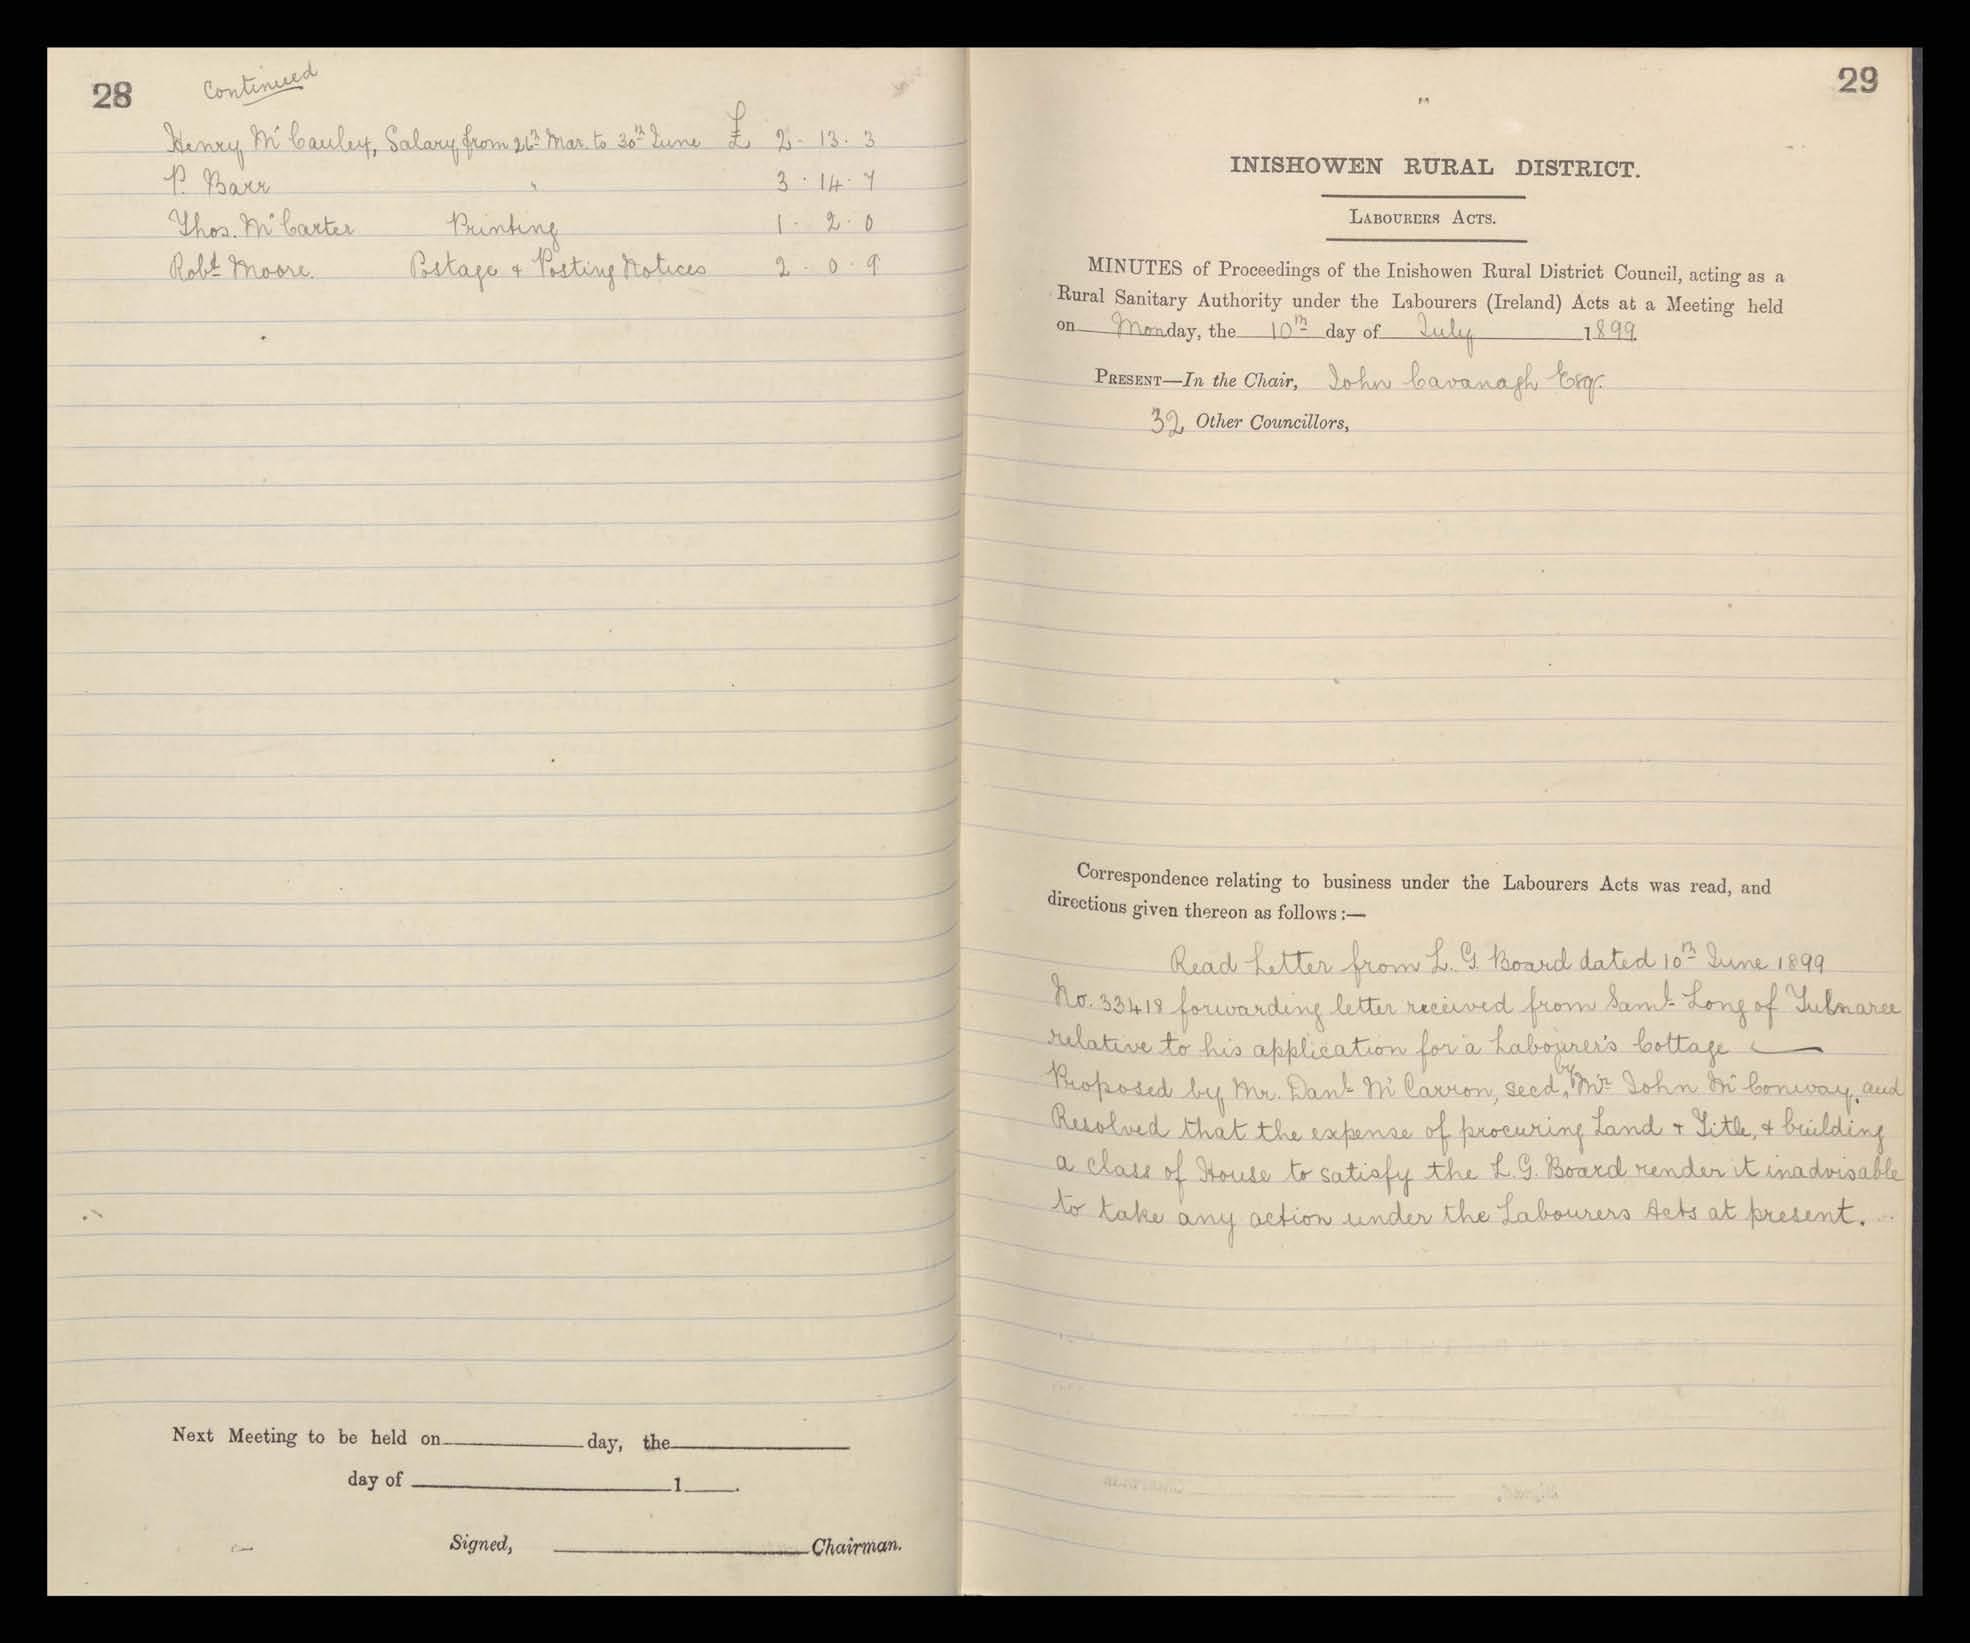 28
Continued
Henry McCauley, Salary from 26th Mar. to 30th June £ 2 - 13 - 3
P. Barr " 3 - 14 - 7
Thos. McCarter Printing 1 - 2 - 0
Robt Moore. Postage & Posting Notices 2 - 0 - 9
Next Meeting to be held on day, the
day of 1 .
Signed, Chairman.
29
INISHOWEN RURAL DISTRICT.
LABOURERS ACTS.
MINUTES of Proceedings of the Inishowen Rural District Council, acting as a
Rural Sanitary Authority under the Labourers (Ireland) Acts at a Meeting held
on Monday, the 10th day of July 1899.
PRESENT—In the Chair, John Cavanagh Esqr.
32 Other Councillors,
Correspondence relating to business under the Labourers Acts was read, and
directions given thereon as follows :—
Read Letter from L. G. Board dated 10th June 1899
No. 33418 forwarding letter received from Saml Long of Tulnaree
relative to his application for a Labourer's Cottage
Proposed by Mr. Danl McCarron, secd by Mr John McConway, and
Resolved that the expense of procuring Land & Title, & building
a class of House to satisfy the L.G. Board render it inadvisable
to take any action under the Labourers Acts at present.